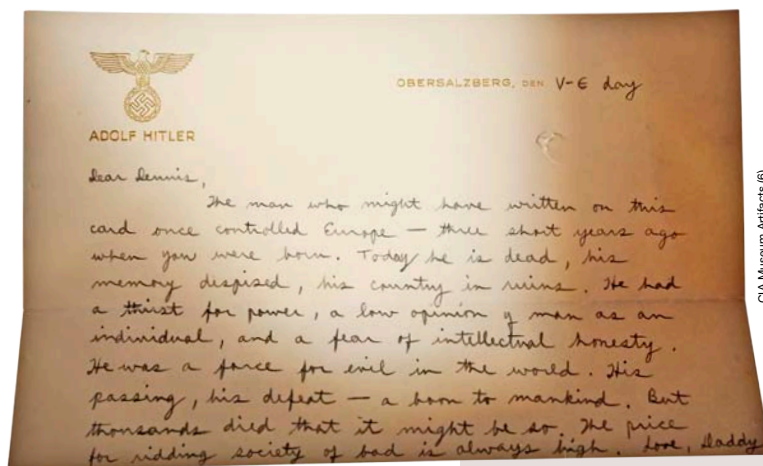 ADOLF HITLER
OBERSALZBERG, DEN V-E day
Dear Dennis,
The man who might have written on this
card once controlled Europe — three short years ago
when you were born. Today he is dead, his
memory despised, his country in ruins. He had
a thirst for power, a low opinion of man as an
individual, and a fear of intellectual honesty.
He was a force for evil in the world. His
passing, his defeat — a boon to mankind. But
thousands died that it might be so. The price
for ridding society of bad is always high. Love, Daddy
CIA Museum Artifacts (6)